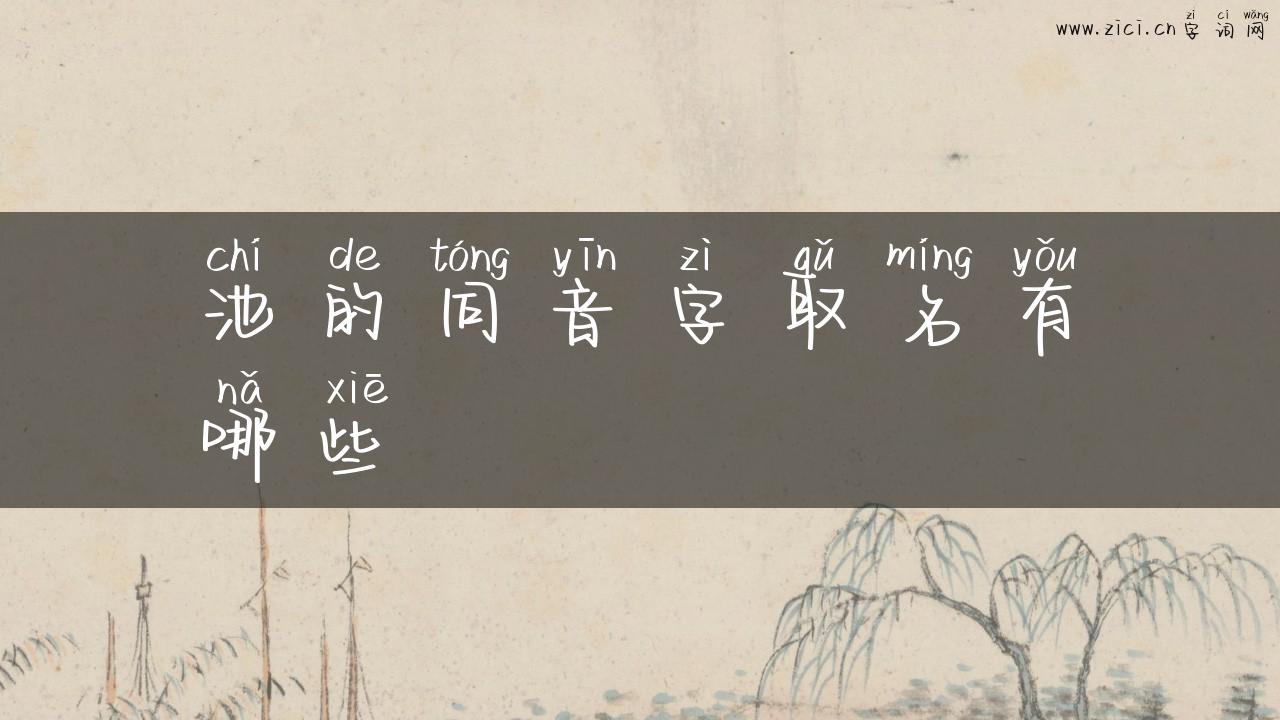 zì cí wǎng
www.zici.cn 字词网
chí de tóng yīn zì qǔ míng yǒu
池的同音字取名有
nǎ xiē
哪些